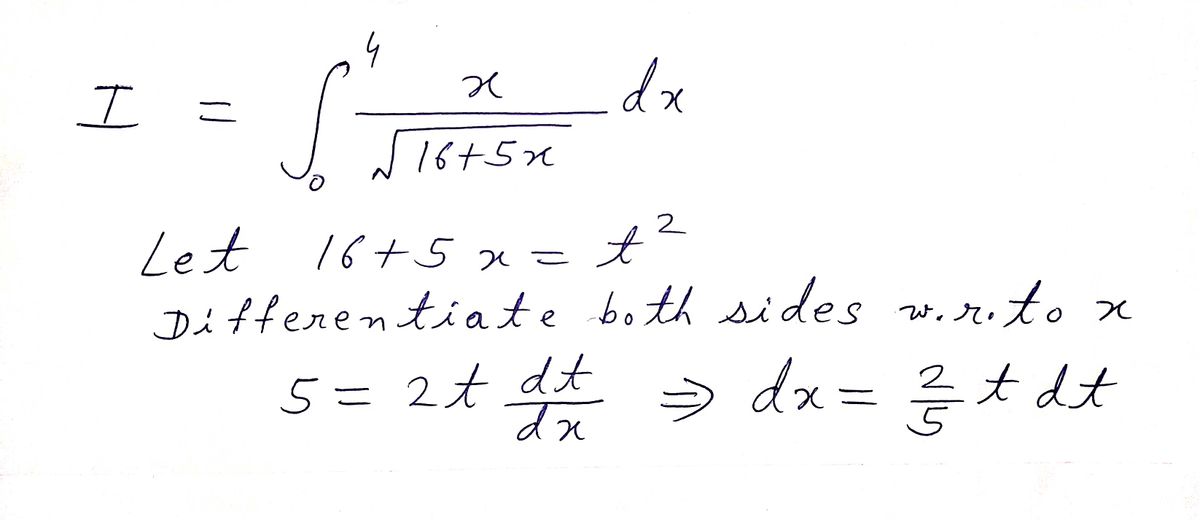 I = ∫₀⁴ x/√(16+5x) dx
Let 16+5x = t²
Differentiate both sides w.r.to x
5 = 2t dt/dx ⇒ dx = 2/5 t dt